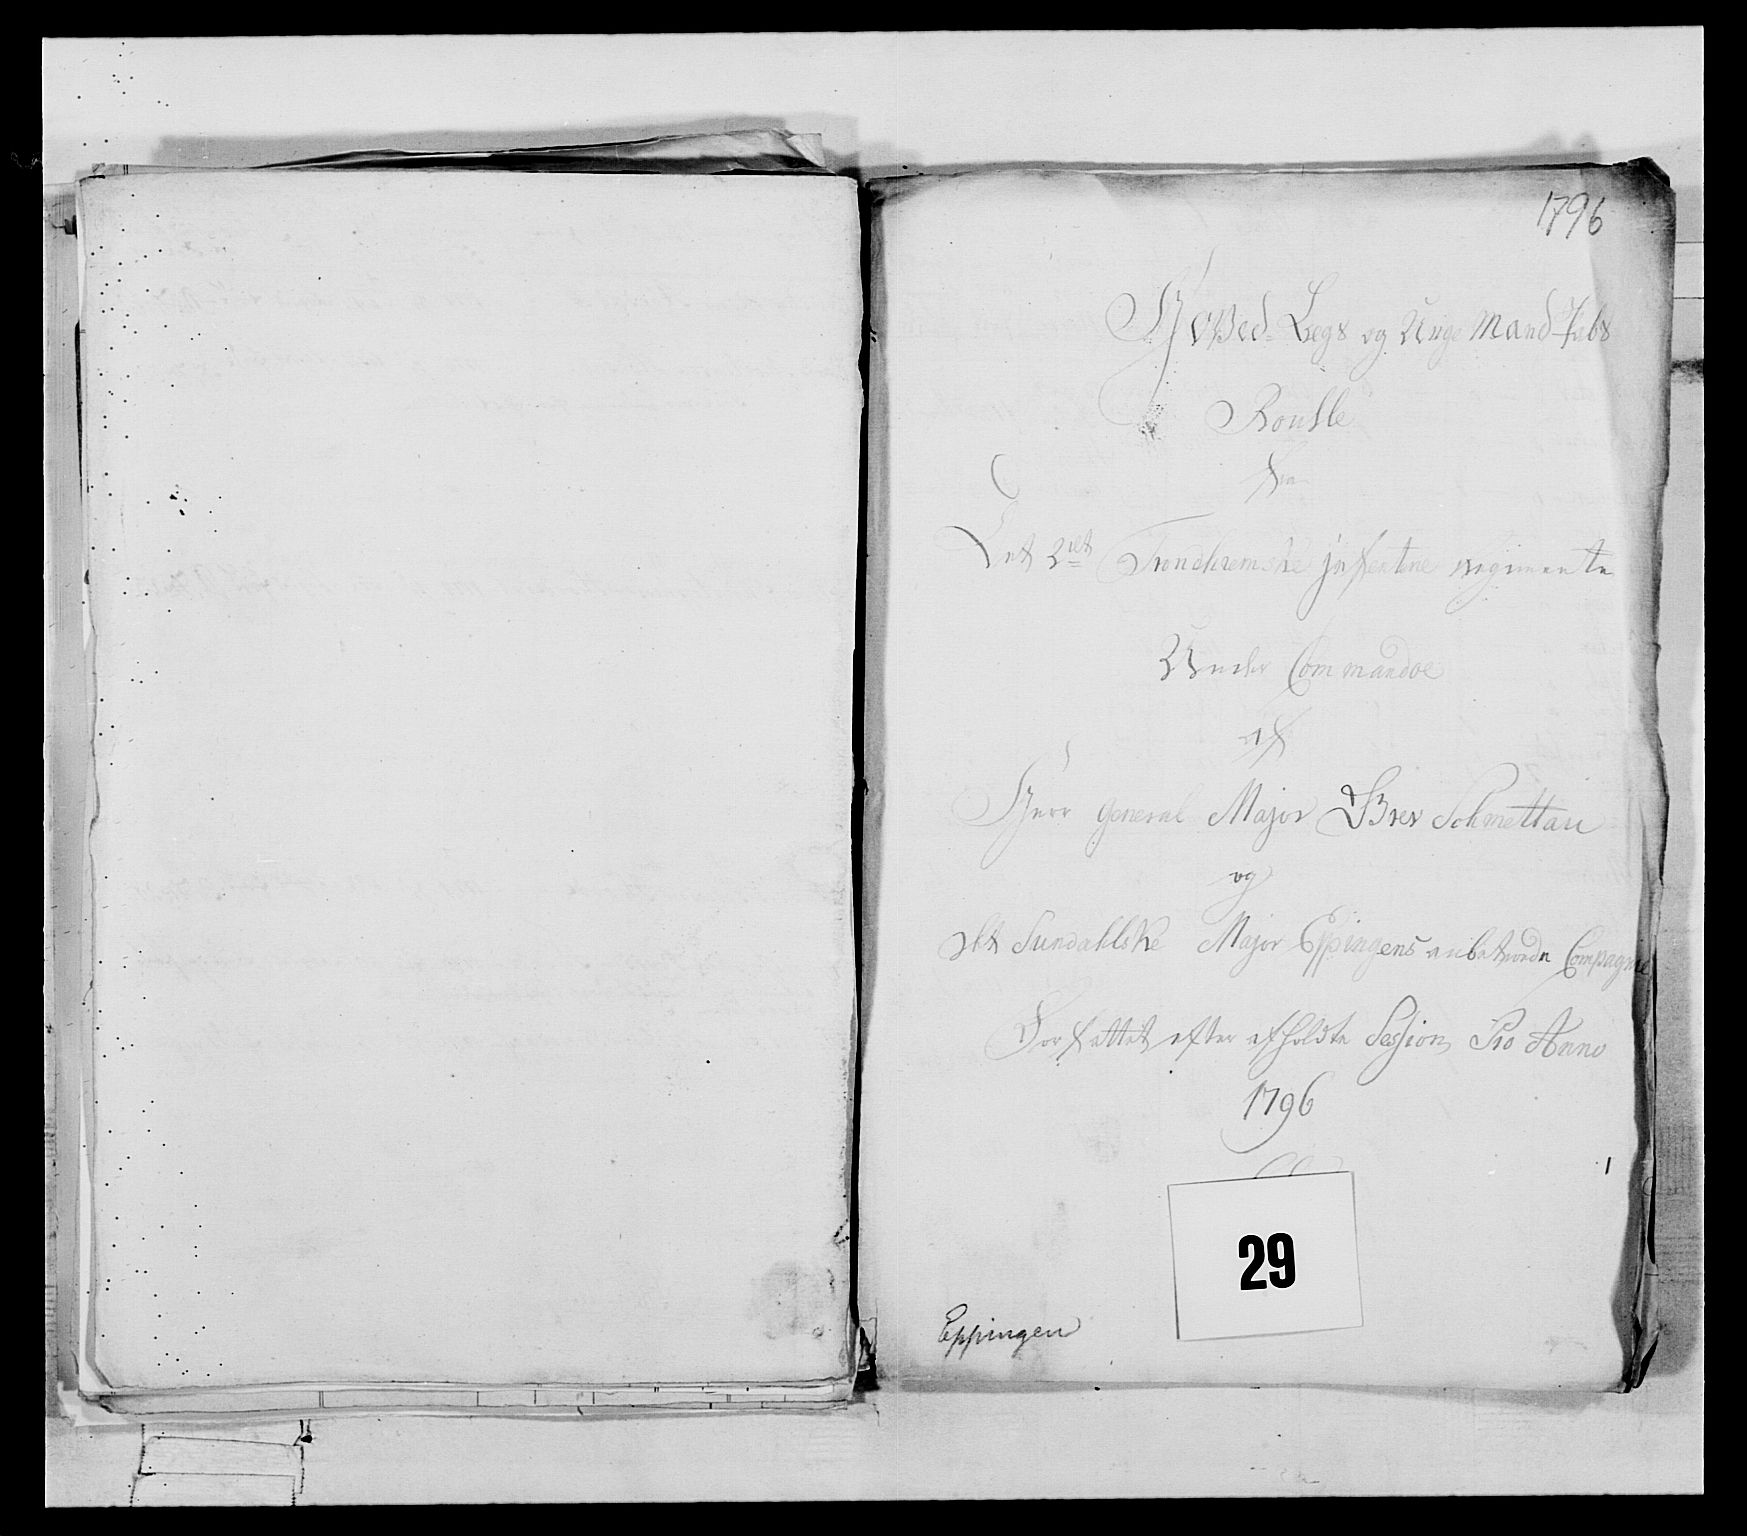 1796
Hoved- Legs og Unge Mand-Skabs
Roulle
fra
Det 2det Trondhiemske jnfanterie regimente
Under Commandoe
af
Herr General Major Grev Schmettau
og
det Sundahlske Major Eppingens anbetroede Compagnie
Forfattet efter afholdte Session Pro Anno
1796
29
Eppingen